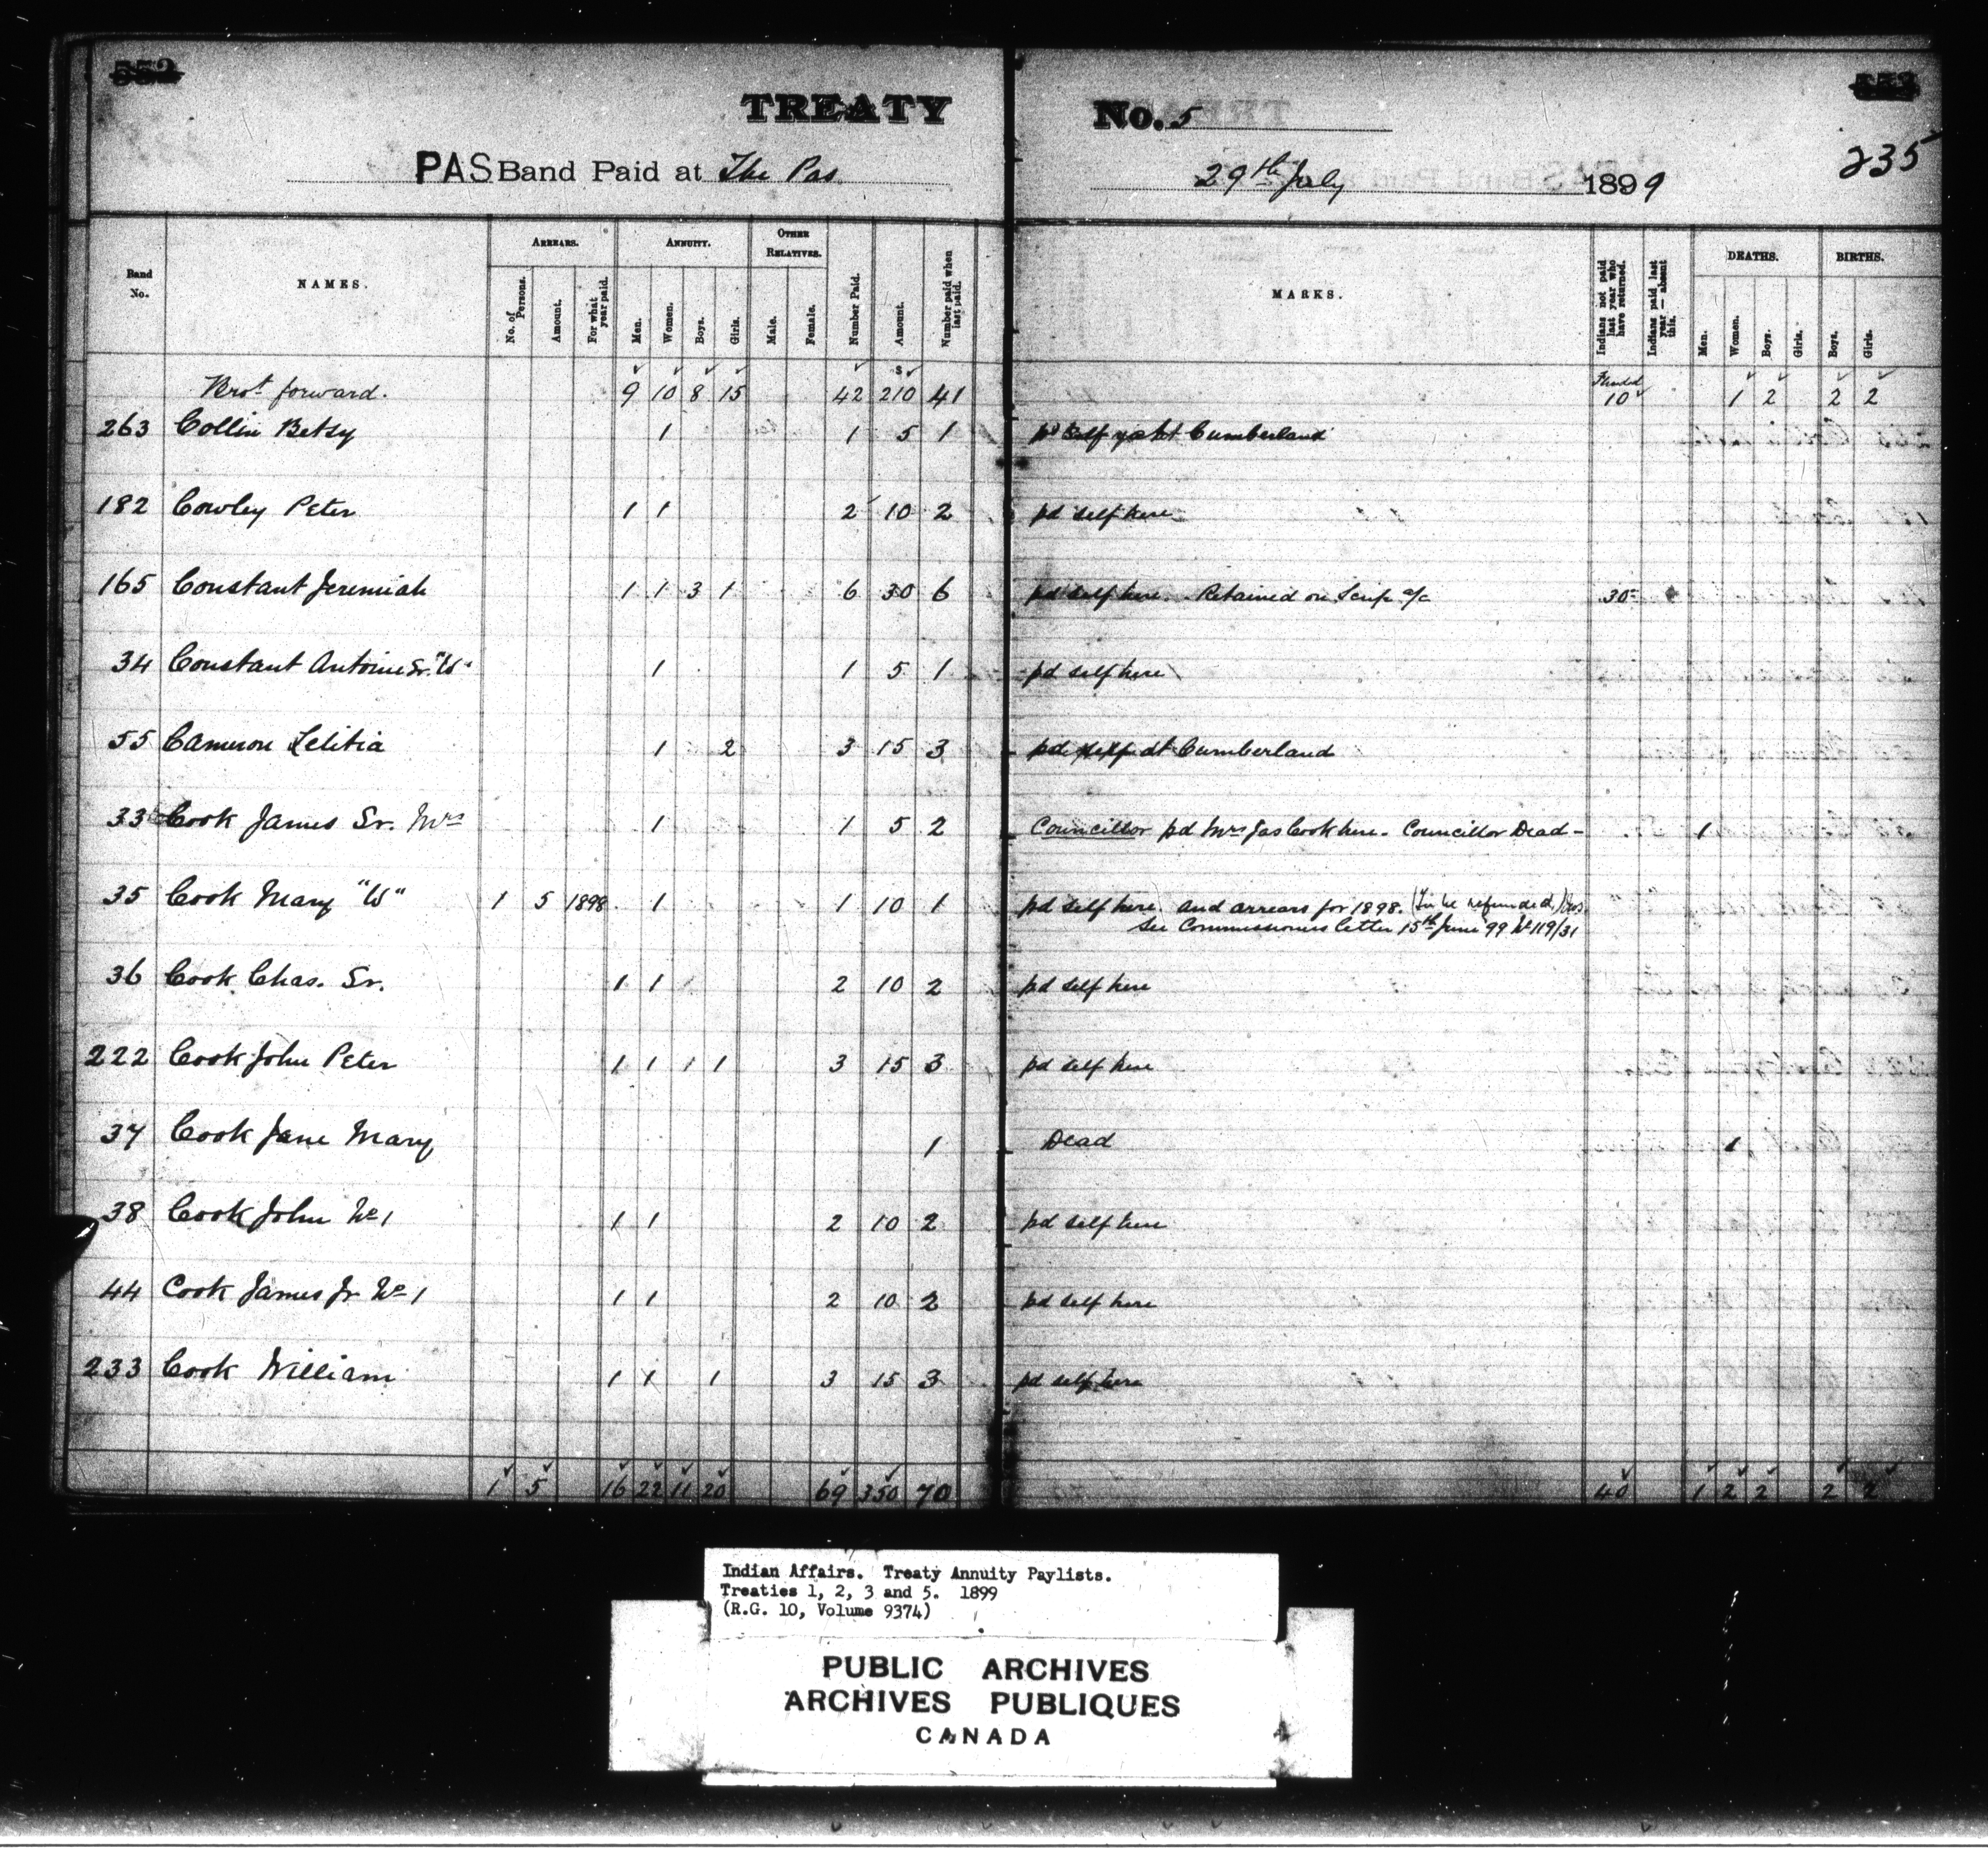 552
553
TREATY No. 5
235
PAS Band Paid at The Pas 29th July 1899
Band No. NAMES. ARREARS. ANNUITY. OTHER RELATIVES. Number Paid. Amount. Number paid when last paid. MARKS. Indians not paid last year who have returned. Indians paid last year — absent this. DEATHS. BIRTHS.
No. of Persons. Amount. For what year paid. Men. Women. Boys. Girls. Male. Female. Men. Women. Boys. Girls. Boys. Girls.
Brot forward. 9 10 8 15 42 $210 41 10 1 2 2 2
263 Collin Betsy 1 1 5 1 pd at Cumberland
182 Cowley Peter 1 1 2 10 2 pd self here
165 Constant Jeremiah 1 1 3 1 6 30 6 pd self here. Retained on Scrip a/c 30
34 Constant Antoine Sr. "W" 1 1 5 1 pd self here
55 Cameron Letitia 1 2 3 15 3 pd self at Cumberland
33 Cook James Sr. Mrs 1 1 5 2 Councillor pd Mrs Jas Cook here. Councillor Dead - 1
35 Cook Mary "W" 1 5 1898 1 1 10 1 pd self here and arrears for 1898. (To be refunded)
See Commissioners letter 15th June '99 No 119/31
36 Cook Chas. Sr. 1 1 2 10 2 pd self here
222 Cook John Peter 1 1 1 1 3 15 3 pd self here
37 Cook Jane Mary 1 Dead 1
38 Cook John No 1 1 1 2 10 2 pd self here
44 Cook James Jr No 1 1 1 2 10 2 pd self here
233 Cook William 1 1 1 3 15 3 pd self here
1 5 16 22 11 20 69 350 70 40 1 2 2 2 2
Indian Affairs. Treaty Annuity Paylists.
Treaties 1, 2, 3 and 5. 1899
(R.G. 10, Volume 9374)
PUBLIC ARCHIVES
ARCHIVES PUBLIQUES
CANADA